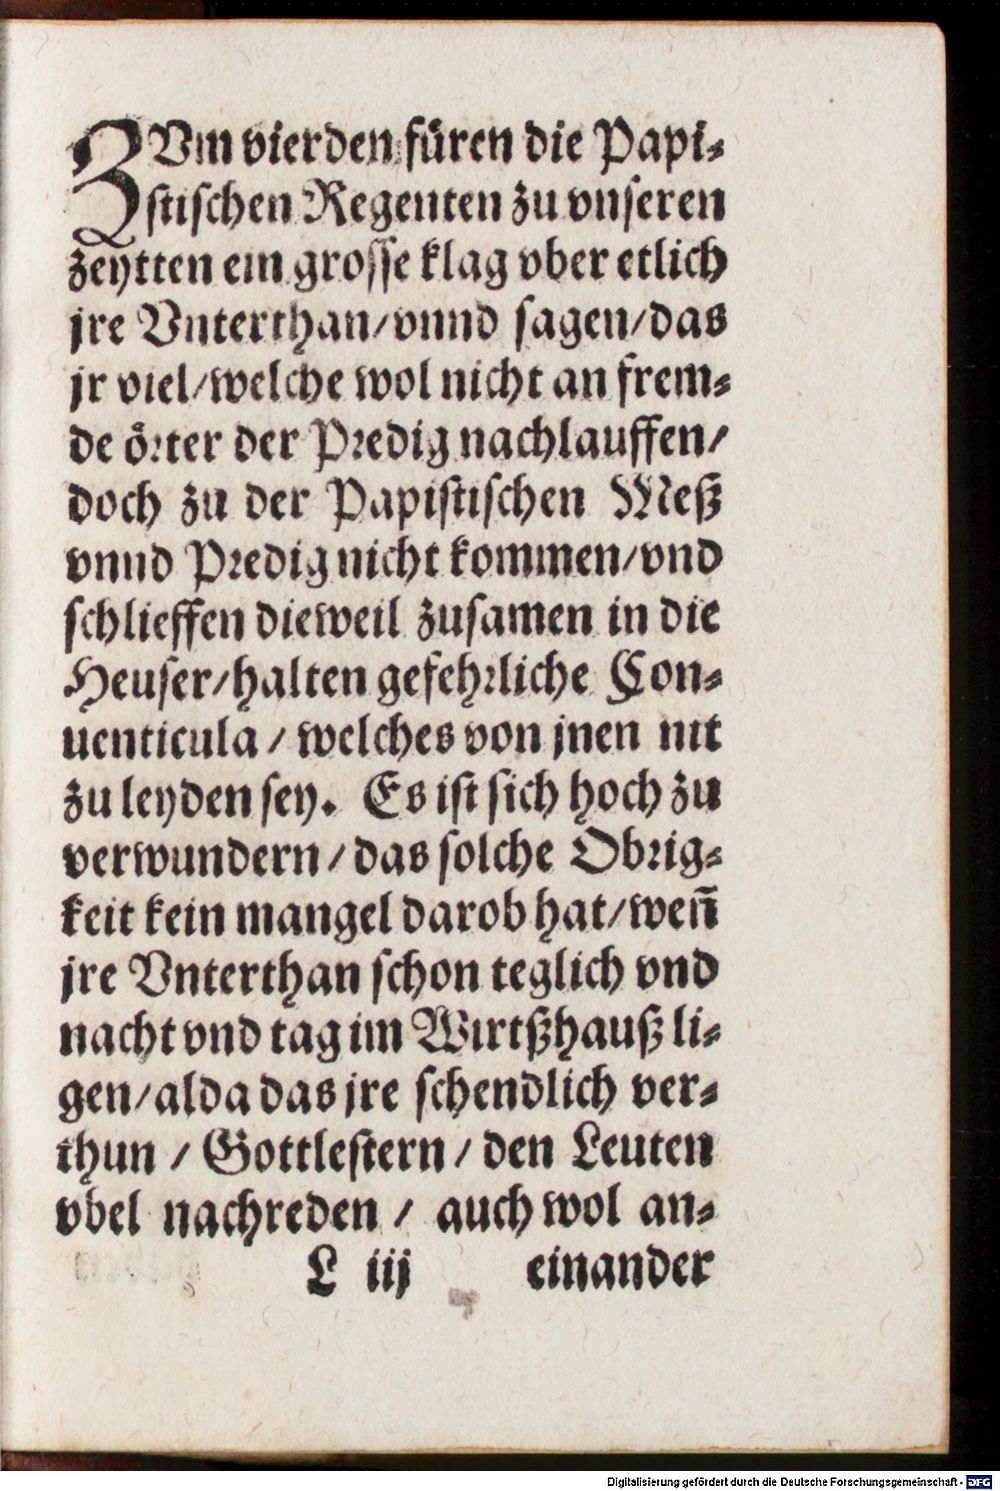 ZVm vierden füren die Papi-
stischen Regenten zu vnseren
zeytten ein grosse klag vber etlich
jre Vnterthan/vnnd sagen/das
jr viel/welche wol nicht an frem-
de örter der Predig nachlauffen/
doch zu der Papistischen Meß
vnnd Predig nicht kommen/vnd
schlieffen dieweil zusamen in die
Heuser/halten gefehrliche Con-
uenticula / welches von jnen nit
zu leyden sey. Es ist sich hoch zu
verwundern / das solche Obrig-
keit kein mangel darob hat/weñ
jre Vnterthan schon teglich vnd
nacht vnd tag im Wirtßhauß li-
gen/alda das jre schendlich ver-
thun / Gottlestern / den Leuten
vbel nachreden / auch wol an-
L iij einander
Digitalisierung gefördert durch die Deutsche Forschungsgemeinschaft - DFG